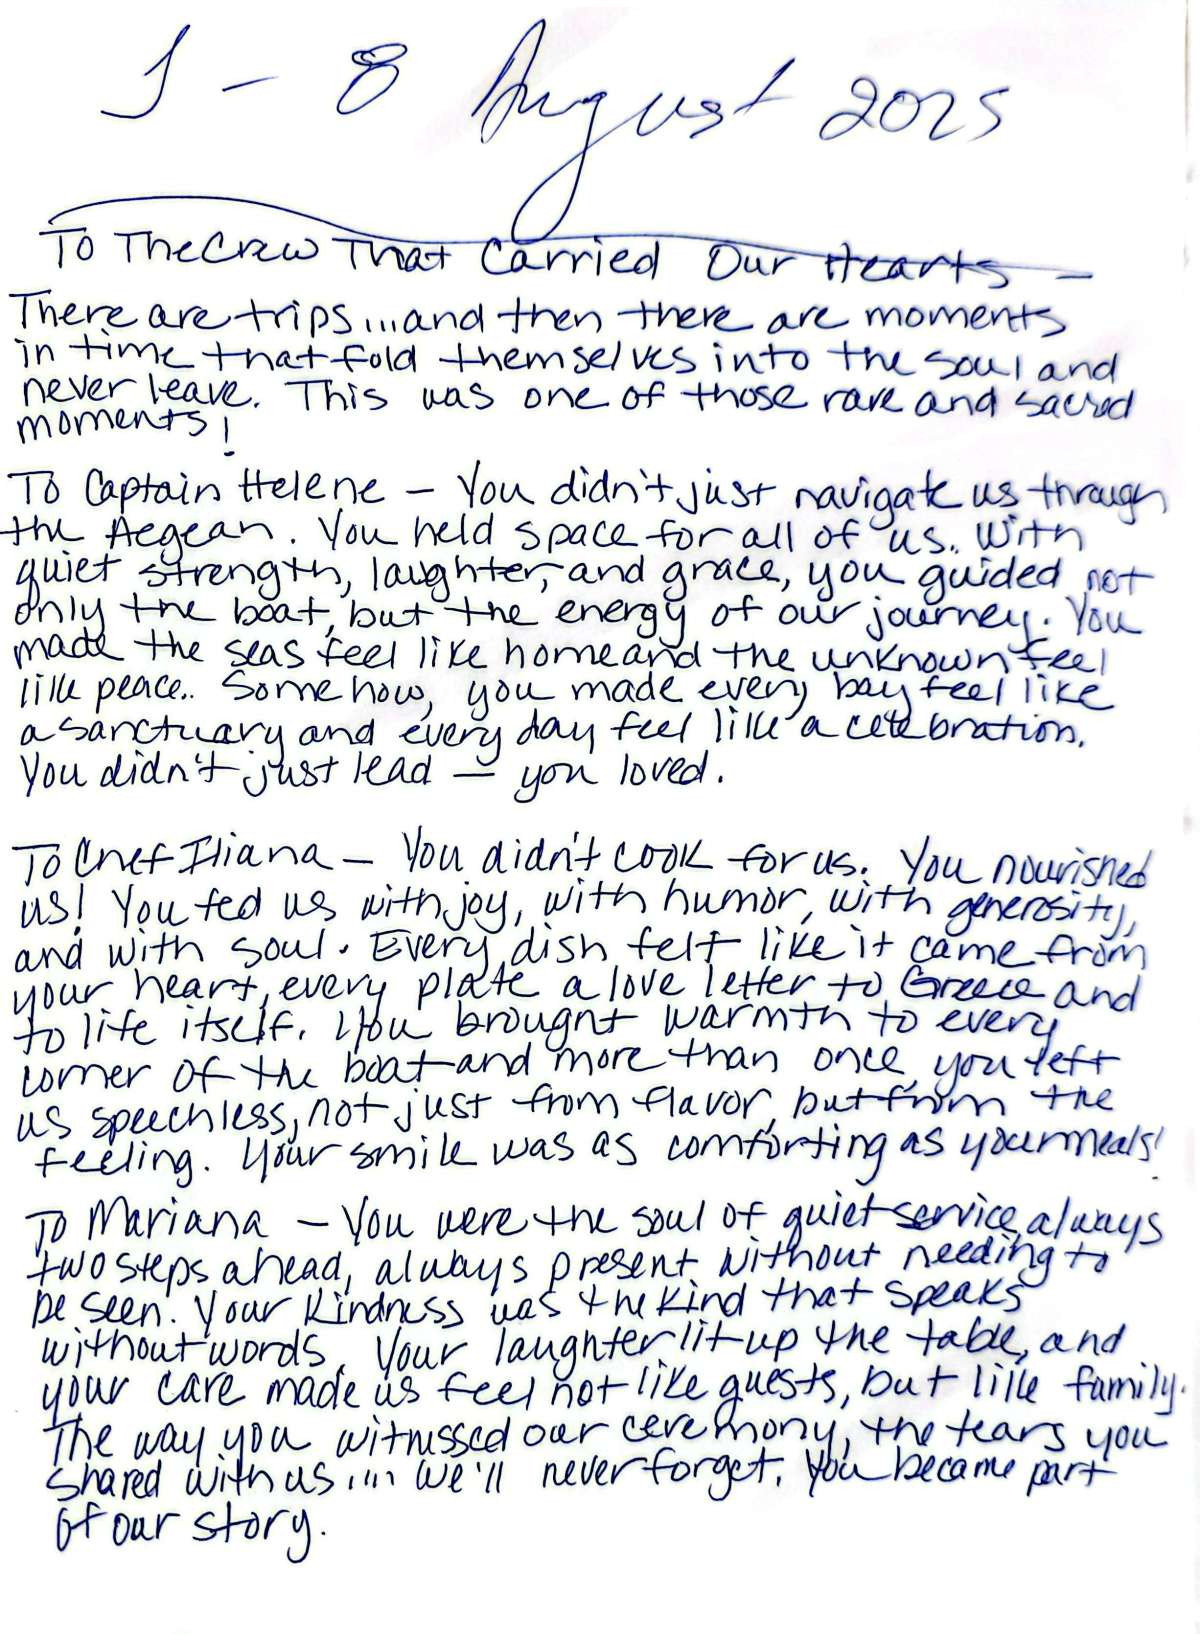 1 - 8 August 2025
To The Crew That Carried Our Hearts -
There are trips...and then there are moments
in time that fold themselves into the soul and
never leave. This was one of those rare and sacred
moments!
To Captain Helene - You didn't just navigate us through
the Aegean. You held space for all of us. With
quiet strength, laughter, and grace, you guided not
only the boat, but the energy of our journey. You
made the seas feel like home and the unknown feel
like peace. Somehow, you made every bay feel like
a sanctuary and every day feel like a celebration.
You didn't just lead — you loved.
To Chef Iliana - You didn't cook for us. You nourished
us! You fed us with joy, with humor, with generosity,
and with soul. Every dish felt like it came from
your heart, every plate a love letter to Greece and
to life itself. You brought warmth to every
corner of the boat and more than once, you left
us speechless, not just from flavor, but from the
feeling. Your smile was as comforting as your meals!
To Mariana - You were the soul of quiet service, always
two steps ahead, always present without needing to
be seen. Your kindness was the kind that speaks
without words. Your laughter lit up the table, and
your care made us feel not like guests, but like family.
The way you witnessed our ceremony, the tears you
shared with us.... we'll never forget. You became part
of our story.